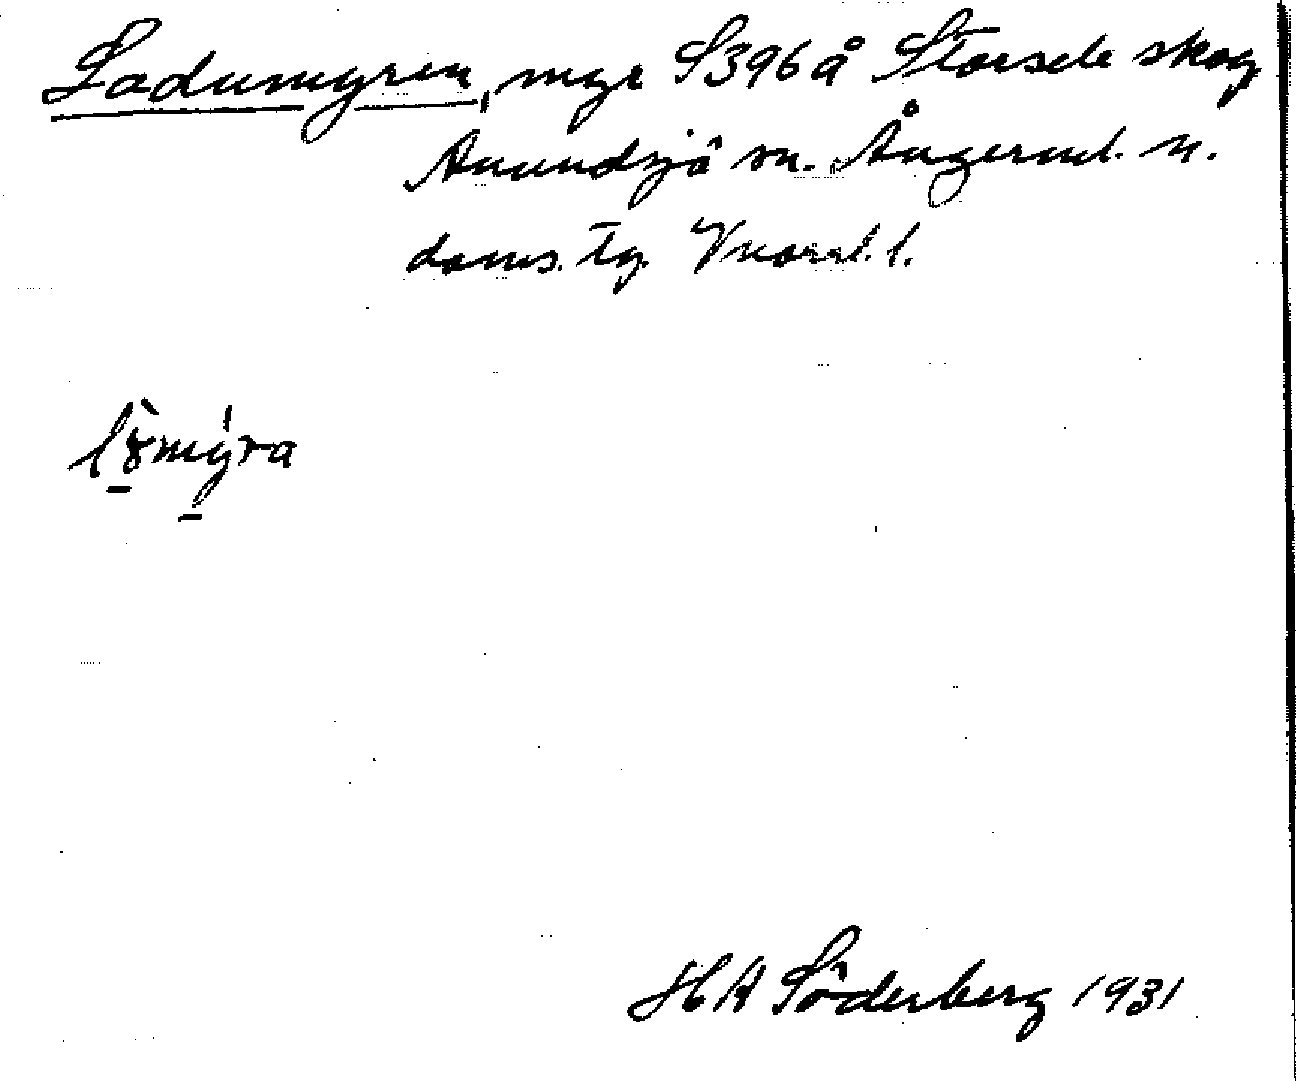 Ladumyren, myr S396 å Storsele skog
Anundsjö sn. Ångerml. n.
doms. tg. Vnorrl. l.
lömýra
H A Söderberg 1931